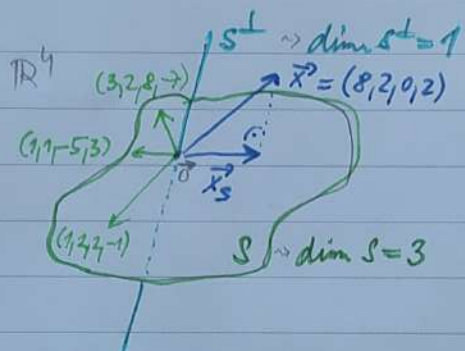 S^⊥ ~> dim S^⊥ = 1
ℝ^4
(3,2,8,-7) x⃗ = (8,2,0,2)
(1,1,-5,3)
0⃗ x⃗_S
(1,2,2,-1) S ~> dim S = 3